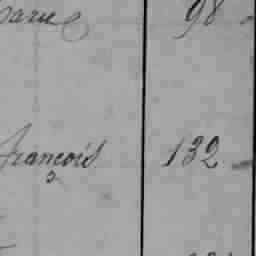 Marie 98
François 132